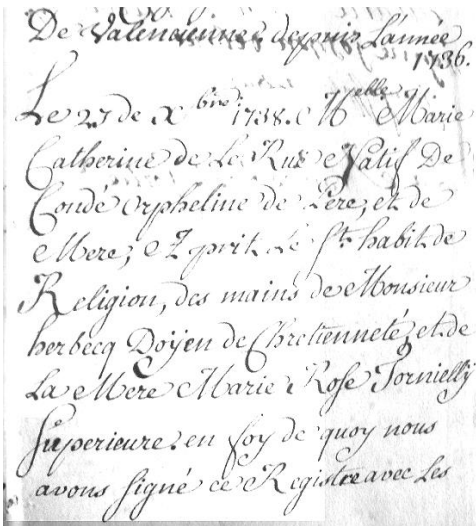 De Valenciennes depuis L'année
1736.
Le 27 de Xbre: 1738. Melle Marie
Catherine de Le Rue Natif De
Condé orpheline de Pere, et de
Mere, prit Le St. habit de
Religion, des mains de Monsieur
herbecq Doÿen de Chretienneté, et de
La Mere Marie Rose Tornielly
Superieure. en foy de quoy nous
avons signé ce Registre avec Les